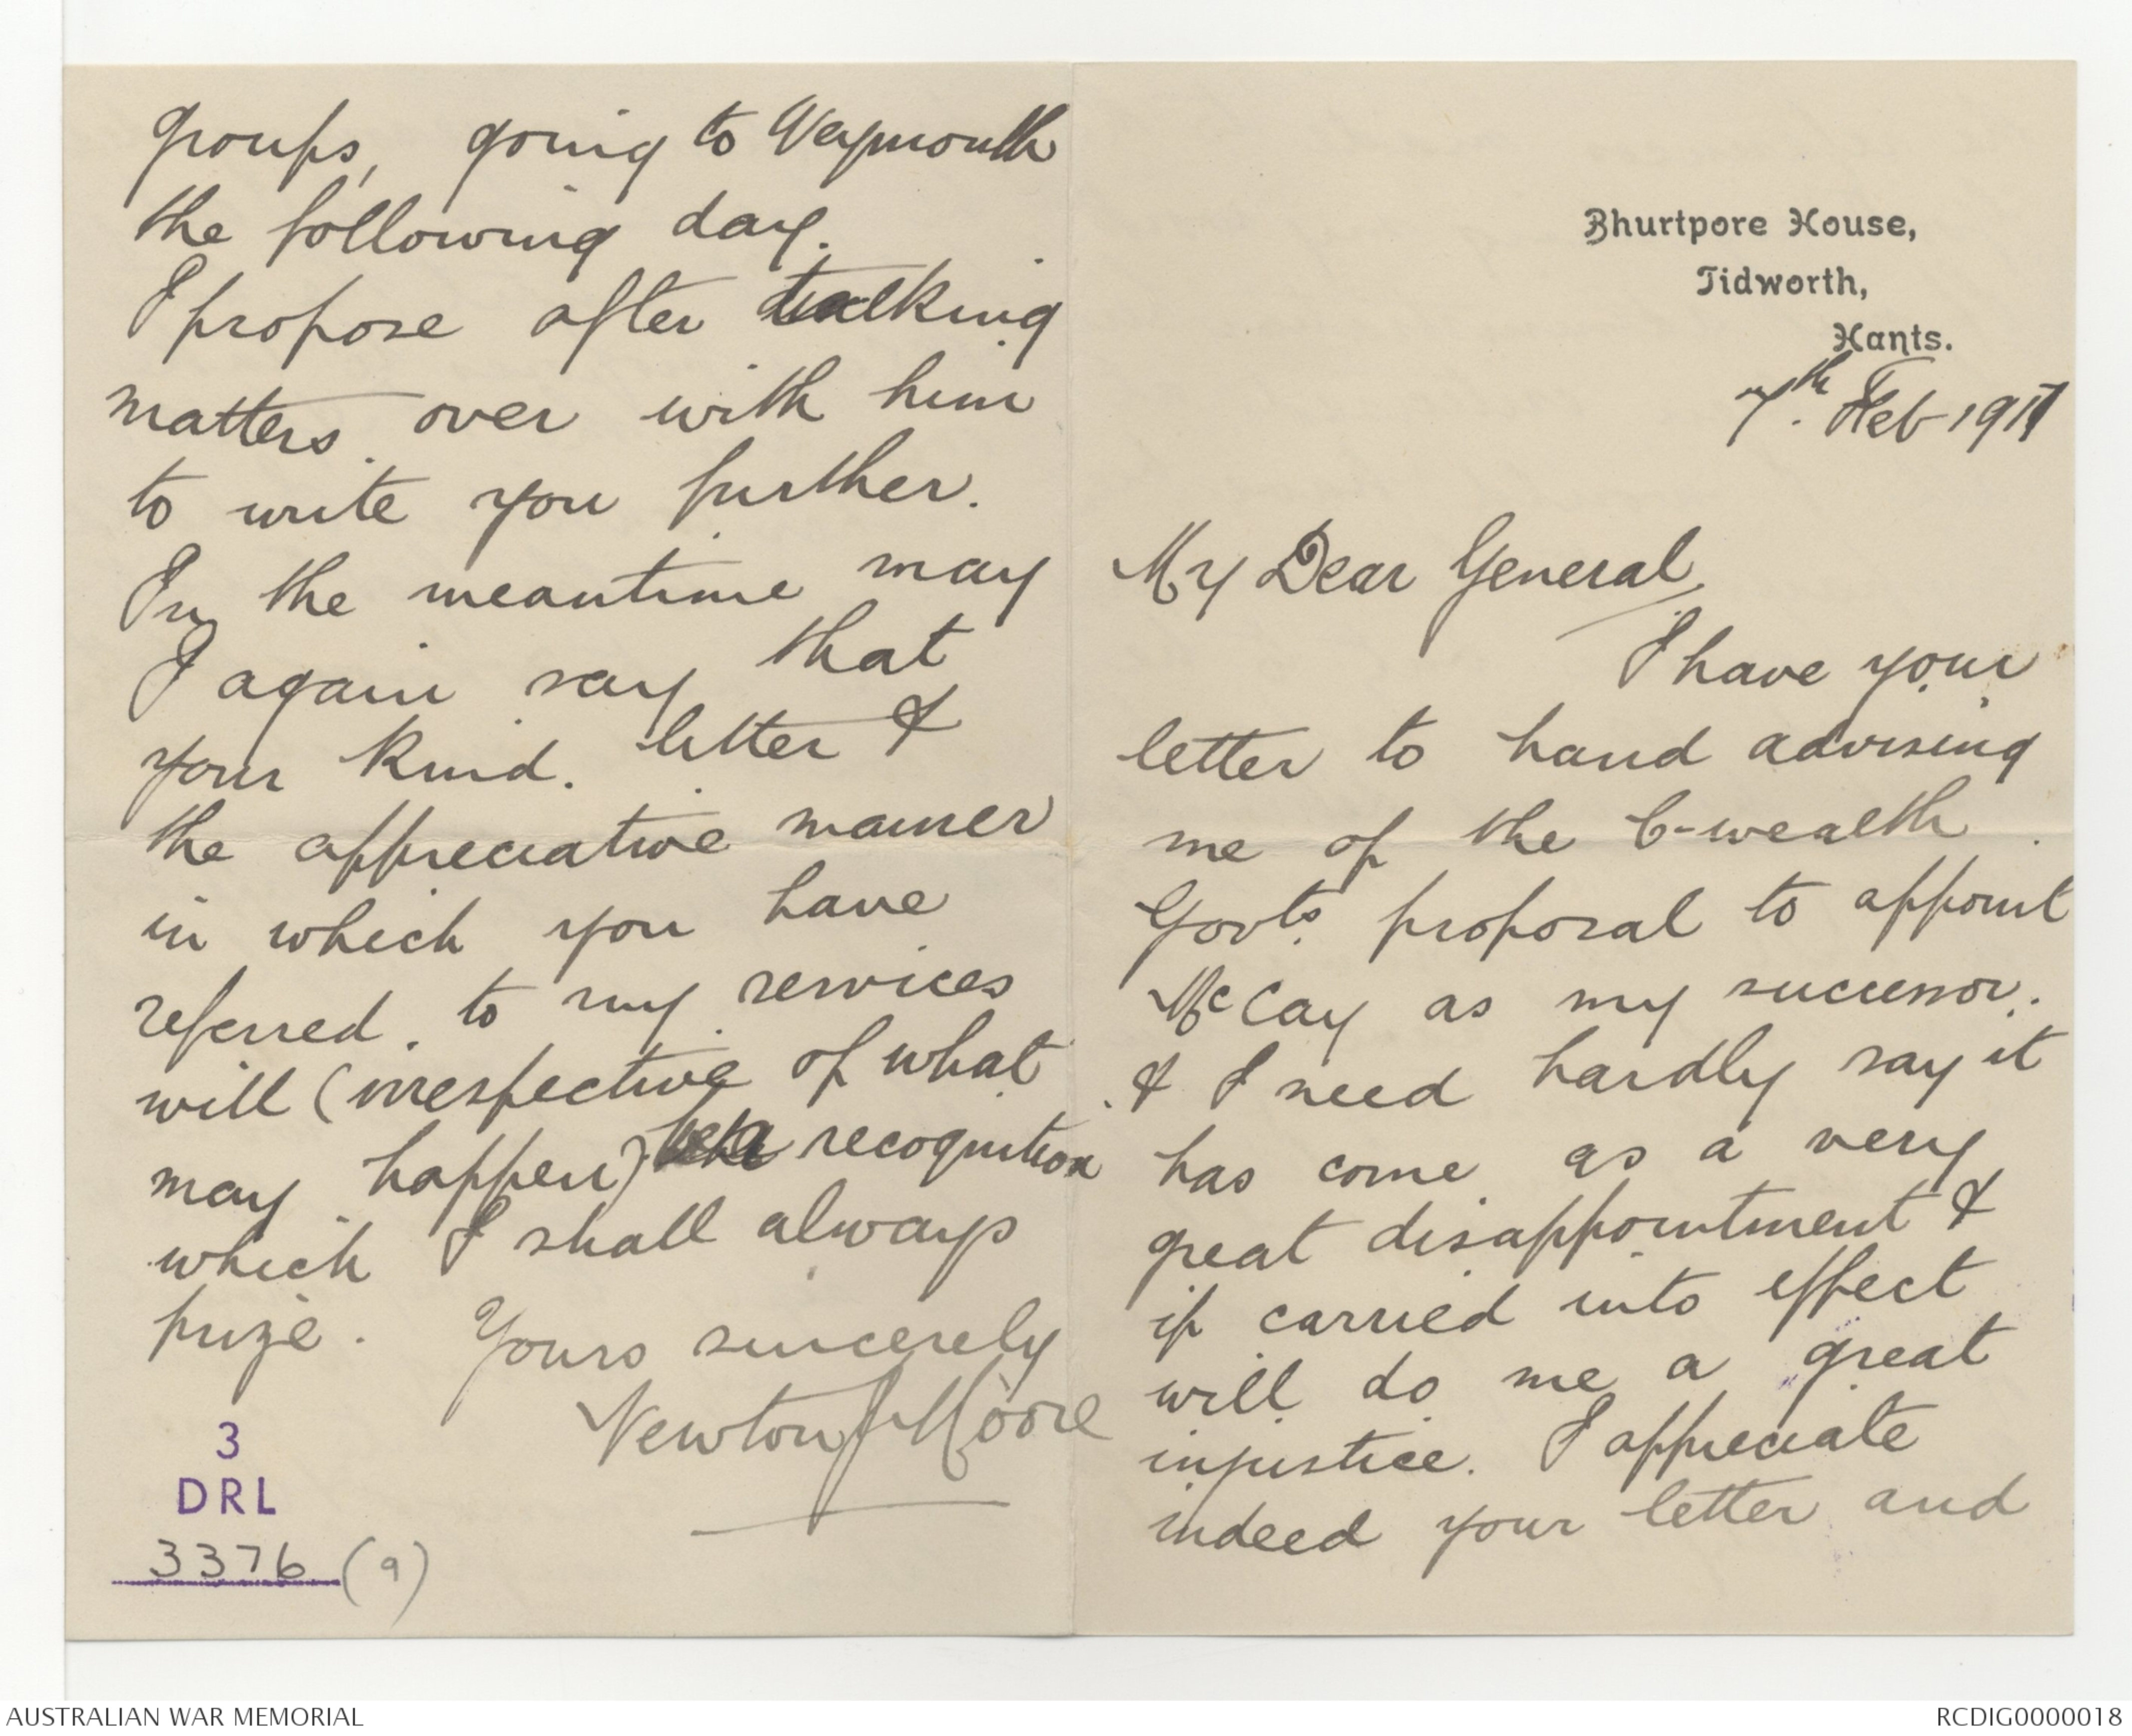 Bhurtpore House,
Tidworth,
Hants.
7th. Feb 1917
My Dear General,
I have your
letter to hand advising
me of the C-wealth
Govts. proposal to appoint
McCay as my successor.
& I need hardly say it
has come as a very
great disappointment &
if carried into effect
will do me a great
injustice. I appreciate
indeed your letter and
groups, going to Weymouth
the following day.
I propose after talking
matters over with him
to write you further.
In the meantime may
I again say that
your kind letter &
the appreciative manner
in which you have
referred to my services
will (irrespective of what
may happen) be a recognition
which I shall always
prize. Yours sincerely
Newton J Moore
3
DRL
3376 (9)
AUSTRALIAN WAR MEMORIAL
RCDIG0000018